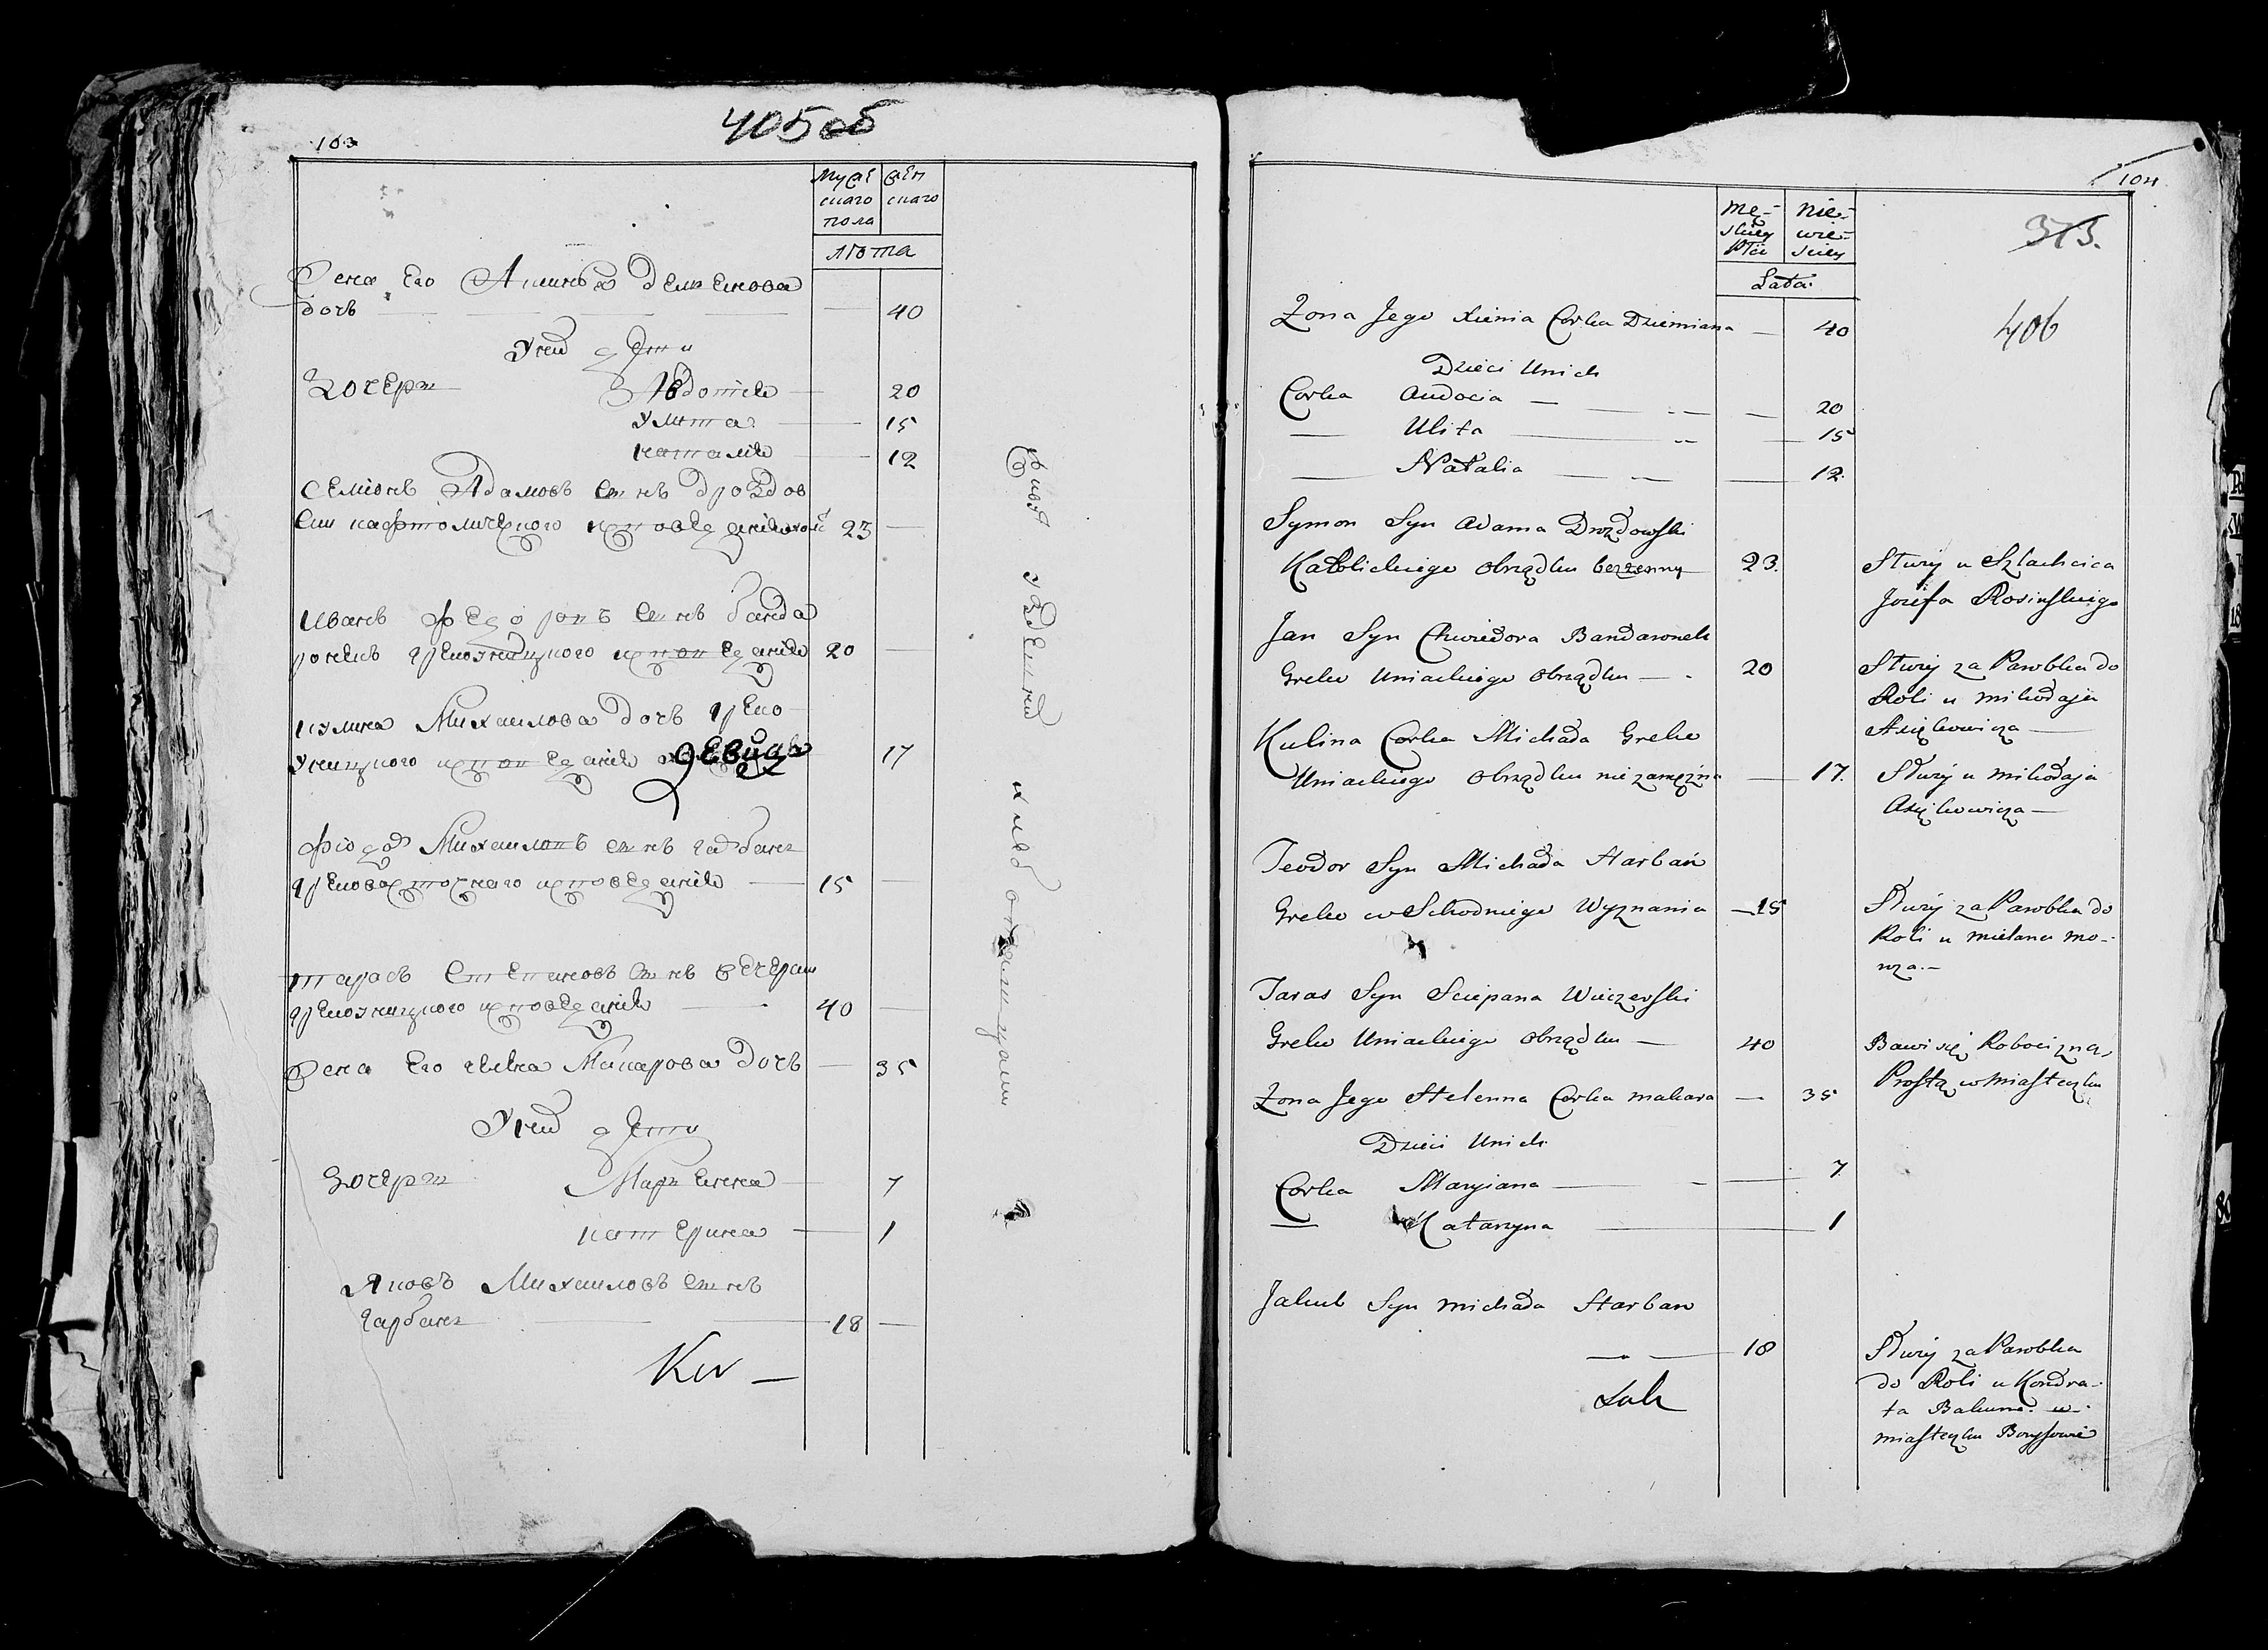 103
405об
Мужескаго пола
женскаго
лѣта
Жена Его Аксинья Демьенова
дочь 40
У них дети
Дочери Авдотия 20
Улита 15
Наталия 12
Семионъ Адамовъ сынъ Дроздов
ски кафтолического исповеданія 23
Иванъ Федоровъ сынъ банда
ронекъ греко уницкого исповеданія 20
кулина Михаилова дочь греко
уницкого исповеданія девица 17
Фіодоръ Михаиловъ сынъ гарбань
грековосточнаго исповеданія 15
тарасъ Степановъ сынъ вечерски
греко уницкого исповеданія 40
Жена Его елена Макарова дочь 35
У них дети
Дочери Марьенна 7
катерина 1
Яковъ Михаиловъ сынъ
гарбань 18
104
Męskiey Płci
Niewieściey
Lata
373.
406
Zona Jego Xienia Corka Dziemiana 40
Dzieci Unich
Corka Audocia 20
Ulita 15
Natalia 12.
Symon Syn Adama Drozdowski
Katolickiego obrządku bezzenny 23. Służy u Szlachcica
Józefa Rosinskiego
Jan Syn Chwiedora Bandaronek
Greko Uniackiego Obrządku 20 Służy za Parobka do
Roli u Mikołaja
Kulina Corka Michała Greko
Uniackiego Obrządku niezamężna 17. Służy u Mikołaja
Teodor Syn Michała Harbań
Greko wschodniego Wyznania 15 Służy za Parobka do
Roli u
Taras Syn Sciepana Wieczerski
Greko Uniackiego Obrządku 40 Bawi się Robocizną
Prostą w Miasteczku
Zona Jego Helenna Corka Makara 35
Dzieci Unich
Corka Maryiana 7
Katarzyna 1
Jakub Syn Michała Harban
18 Służy za Parobka
do Roli u Kondra-
ta Bakuna w
miasteczku Borysowie